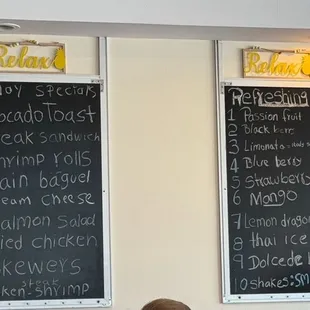 Relax
oy Specials
ocado Toast
eak sandwich
hrimp rolls
ain baguel
eam cheese
almon Salad
ied chicken
kewers
steak
ken-shrimp
Relax
Refreshing
1 Passion fruit
2 Black bere
3 Limonata
4 Blue berry
5 Strawberry
6 Mango
7 Lemon drago
8 thai ice
9 Dolcede
10 shakes:sm